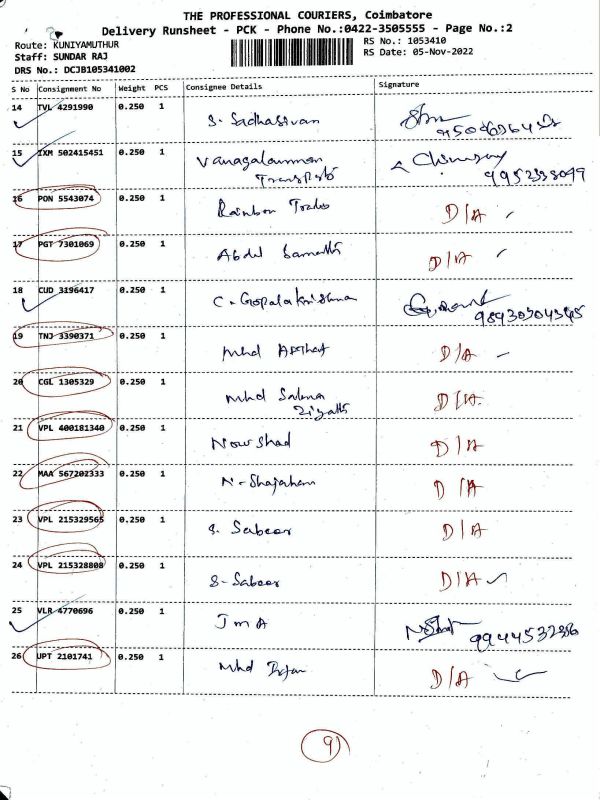 THE PROFESSIONAL COURIERS, Coimbatore
Delivery Runsheet - PCK - Phone No.:0422-3505555 - Page No.:2
Route: KUNIYAMUTHUR RS No.: 1053410
Staff: SUNDAR RAJ RS Date: 05-Nov-2022
DRS No.: DCJB105341002
S No Consignment No Weight PCS Consignee Details Signature
14 TVL 4291990 0.250 1 S. Sadhasivan
15 IXM 502415451 0.250 1 Transports 9952338099
16 PON 5543074 0.250 1 Rainbow Trades D/A
17 PGT 7301069 0.250 1 Abdul D/A
18 CUD 3196417 0.250 1 C. Gopalakrishna
19 TNJ 3390371 0.250 1 Mhd D/A
20 CGL 1305329 0.250 1 Mhd D/A
21 VPL 400181340 0.250 1 Nowshad D/A
22 MAA 567202333 0.250 1 N. Shajahan D/A
23 VPL 215329565 0.250 1 S. Sabeer D/A
24 VPL 215328808 0.250 1 S. Sabeer D/A
25 VLR 4770696 0.250 1 JMA
26 UPT 2101741 0.250 1 Mhd Irfan D/A
9